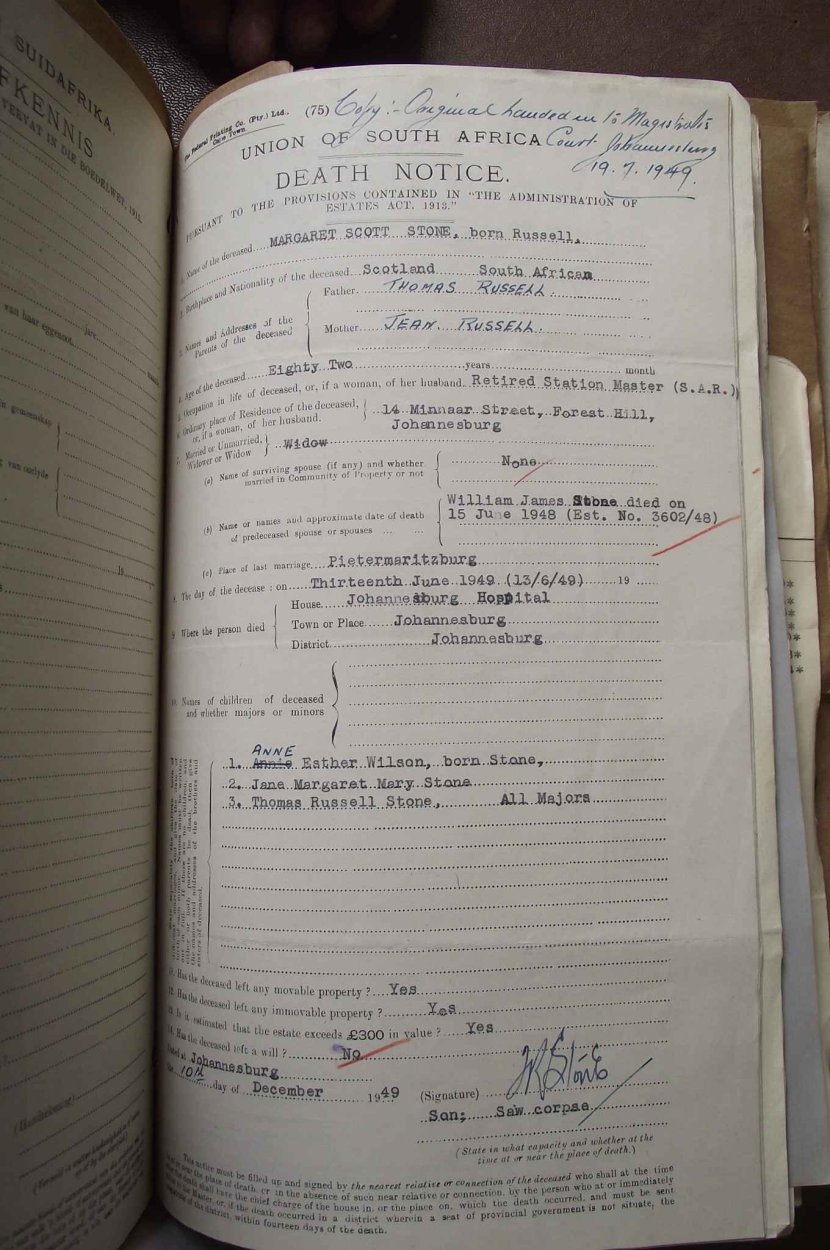 SUIDAFRIKA.
FKENNIS
VERVAT IN DIE BOEDELWET, 1913.
van haar eggenoot
jare
maande
in gemeenskap
19
(Handtekening)
The Federal Printing Co. (Pty.) Ltd.,
Cape Town.
(75) Copy :- Original handed in to Magistrates
Court Johannesburg
19.7.1949.
UNION OF SOUTH AFRICA
DEATH NOTICE.
PURSUANT TO THE PROVISIONS CONTAINED IN "THE ADMINISTRATION OF
ESTATES ACT, 1913."
1. Name of the deceased MARGARET SCOTT STONE, born Russell,
2. Birthplace and Nationality of the deceased Scotland South African
3. Names and Addresses of the
Parents of the deceased
Father THOMAS RUSSELL.
Mother JEAN RUSSELL.
4. Age of the deceased Eighty Two years month
5. Occupation in life of deceased, or, if a woman, of her husband Retired Station Master (S.A.R.)
6. Ordinary place of Residence of the deceased,
or, if a woman, of her husband.
14 Minnaar Street, Forest Hill,
Johannesburg
7. Married or Unmarried,
Widower or Widow
Widow
(a) Name of surviving spouse (if any) and whether
married in Community of Property or not
None
(b) Name or names and approximate date of death
of predeceased spouse or spouses
William James Stone died on
15 June 1948 (Est. No. 3602/48)
(c) Place of last marriage Pietermaritzburg
8. The day of the decease : on Thirteenth June 1949 (13/6/49) 19
9. Where the person died
House Johannesburg Hospital
Town or Place Johannesburg
District Johannesburg
10. Names of children of deceased
and whether majors or minors
ANNE
1. Annie Esther Wilson, born Stone,
2. Jane Margaret Mary Stone
3. Thomas Russell Stone, All Majors
11. Has the deceased left any movable property ? Yes
12. Has the deceased left any immovable property ? Yes
13. Is it estimated that the estate exceeds £300 in value ? Yes
14. Has the deceased left a will ? No
Dated at Johannesburg
the 10th day of December 1949
(Signature) TRStone
Son; Saw corpse
(State in what capacity and whether at the
time at or near the place of death.)
This notice must be filled up and signed by the nearest relative or connection of the deceased who shall at the time
be at or near the place of death, or in the absence of such near relative or connection, by the person who at or immediately
after the death shall have the chief charge of the house in, or the place on, which the death occurred, and must be sent
to the Master, or, if the death occurred in a district wherein a seat of provincial government is not situate, the
of the district, within fourteen days of the death.